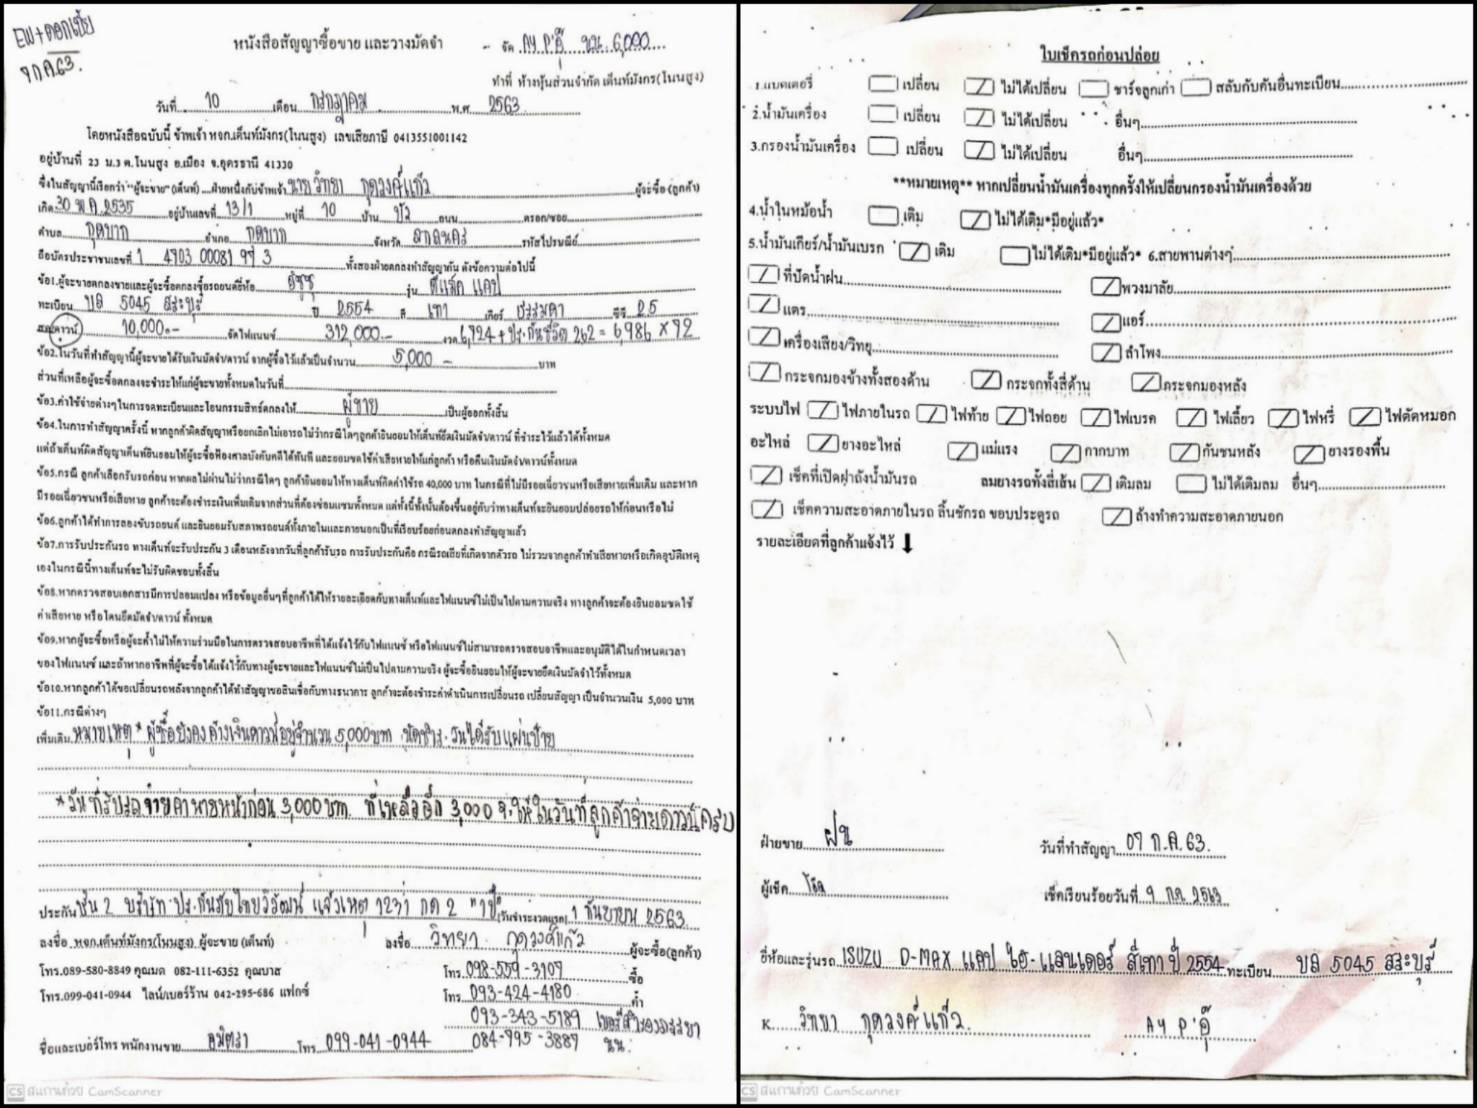 EW+ดอกเบี้ย
9 ก.ค.63.
หนังสือสัญญาซื้อขาย และวางมัดจำ
- จัด AY P'อุ๊ นน. 6,000
ทำที่ ห้างหุ้นส่วนจำกัด เต็นท์มังกร(โนนสูง)
วันที่ 10 เดือน กรกฎาคม พ.ศ. 2563
โดยหนังสือฉบับนี้ ข้าพเจ้า หจก.เต็นท์มังกร(โนนสูง) เลขเสียภาษี 0413551001142
อยู่บ้านที่ 23 ม.3 ต.โนนสูง อ.เมือง จ.อุดรธานี 41330
ซึ่งในสัญญานี้เรียกว่า "ผู้จะขาย" (เต็นท์) ...ฝ่ายหนึ่งกับข้าพเจ้า นาย วิทยา กุดวงค์แก้ว ผู้จะซื้อ (ลูกค้า)
เกิด 30 พ.ค. 2535 อยู่บ้านเลขที่ 13/1 หมู่ที่ 10 บ้าน บัว ถนน ตรอก/ซอย
ตำบล กุดบาก อำเภอ กุดบาก จังหวัด สกลนคร รหัสไปรษณีย์
ถือบัตรประชาชนเลขที่ 1 4703 00081 99 3 ทั้งสองฝ่ายตกลงทำสัญญากัน ดังข้อความต่อไปนี้
ข้อ1.ผู้จะขายตกลงขายและผู้จะซื้อตกลงซื้อรถยนต์ยี่ห้อ อีซูซุ รุ่น ดีแม็ก แคป
ทะเบียน บล 5045 สระบุรี ปี 2554 สี เทา เกียร์ ธรรมดา ซีซี 2.5
สดดาวน์ 10,000.- จัดไฟแนนซ์ 312,000.- งวด 6,724 + ประกันชีวิต 262 = 6,986 x 72
ข้อ2.ในวันที่ทำสัญญานี้ผู้จะขายได้รับเงินมัดจำ/ดาวน์ จากผู้ซื้อไว้แล้วเป็นจำนวน 5,000 - บาท
ส่วนที่เหลือผู้จะซื้อตกลงจะชำระให้แก่ผู้จะขายทั้งหมดในวันที่
ข้อ3.ค่าใช้จ่ายต่างๆในการจดทะเบียนและโอนกรรมสิทธิ์ตกลงให้ ผู้ขาย เป็นผู้ออกทั้งสิ้น
ข้อ4.ในการทำสัญญาครั้งนี้ หากลูกค้าผิดสัญญาหรือยกเลิกไม่เอารถไม่ว่ากรณีใดๆลูกค้ายินยอมให้เต็นท์ยึดเงินมัดจำ/ดาวน์ ที่ชำระไว้แล้วได้ทั้งหมด
แต่ถ้าเต็นท์ผิดสัญญาเต็นท์ยินยอมให้ผู้จะซื้อฟ้องศาลบังคับคดีได้ทันที และยอมชดใช้ค่าเสียหายให้แก่ลูกค้า หรือคืนเงินมัดจำ/ดาวน์ทั้งหมด
ข้อ5.กรณี ลูกค้าเลือกรับรถก่อน หากผลไม่ผ่านไม่ว่ากรณีใดๆ ลูกค้ายินยอมให้ทางเต็นท์คิดค่าใช้รถ 40,000 บาท ในกรณีที่ไม่มีรอยเฉี่ยวชนหรือเสียหายเพิ่มเติม และหาก
มีรอยเฉี่ยวชนหรือเสียหาย ลูกค้าจะต้องชำระเงินเพิ่มเติมจากส่วนที่ต้องซ่อมแซมทั้งหมด แต่ทั้งนี้ทั้งนั้นต้องขึ้นอยู่กับว่าทางเต็นท์จะยินยอมปล่อยรถให้ก่อนหรือไม่
ข้อ6.ลูกค้าได้ทำการลองขับรถยนต์ และยินยอมรับสภาพรถยนต์ทั้งภายในและภายนอกเป็นที่เรียบร้อยก่อนตกลงทำสัญญาแล้ว
ข้อ7.การรับประกันรถ ทางเต็นท์จะรับประกัน 3 เดือนหลังจากวันที่ลูกค้ารับรถ การรับประกันคือ กรณีรถเสียที่เกิดจากตัวรถ ไม่รวมจากลูกค้าทำเสียหายหรือเกิดอุบัติเหตุ
เองในกรณีนี้ทางเต็นท์จะไม่รับผิดชอบทั้งสิ้น
ข้อ8.หากตรวจสอบเอกสารมีการปลอมแปลง หรือข้อมูลอื่นๆที่ลูกค้าได้ให้รายละเอียดกับทางเต็นท์และไฟแนนซ์ไม่เป็นไปตามความจริง ทางลูกค้าจะต้องยินยอมชดใช้
ค่าเสียหาย หรือโดนยึดมัดจำ/ดาวน์ ทั้งหมด
ข้อ9.หากผู้จะซื้อหรือผู้จะค้ำไม่ให้ความร่วมมือในการตรวจสอบอาชีพที่ได้แจ้งไว้กับไฟแนนซ์ หรือไฟแนนซ์ไม่สามารถตรวจสอบอาชีพและอนุมัติได้ในกำหนดเวลา
ของไฟแนนซ์ และถ้าหากอาชีพที่ผู้จะซื้อได้แจ้งไว้กับทางผู้จะขายและไฟแนนซ์ไม่เป็นไปตามความจริง ผู้จะซื้อยินยอมให้ผู้จะขายยึดเงินมัดจำไว้ทั้งหมด
ข้อ10.หากลูกค้าได้ขอเปลี่ยนรถหลังจากลูกค้าได้ทำสัญญาขอสินเชื่อกับทางธนาคาร ลูกค้าจะต้องชำระค่าดำเนินการเปลี่ยนรถ เปลี่ยนสัญญา เป็นจำนวนเงิน 5,000 บาท
ข้อ11.กรณีต่างๆ
เพิ่มเติม หมายเหตุ * ผู้ซื้อยังคงค้างเงินดาวน์อยู่จำนวน 5,000 บาท นัดชำระวันได้รับแผ่นป้าย
* วันที่รับรถจ่ายค่านายหน้าก่อน 3,000 บาท. ที่เหลืออีก 3,000 จะให้ในวันที่ลูกค้าจ่ายดาวน์ครบ
ประกัน ชั้น 2 บริษัท ประกันภัยไทยวิวัฒน์ แจ้งเหตุ 1231 กด 2 "1ปี" วันชำระงวดแรก 1 กันยายน 2563
ลงชื่อ หจก.เต็นท์มังกร(โนนสูง) ผู้จะขาย (เต็นท์) ลงชื่อ วิทยา กุดวงค์แก้ว ผู้จะซื้อ(ลูกค้า)
โทร.089-580-8849 คุณมด 082-111-6352 คุณบาส โทร. 098-559-3109 ซื้อ
โทร.099-041-0944 ไลน์/เบอร์ร้าน 042-295-686 แฟกซ์ โทร. 093-424-4180 ค้ำ
093-343-5189
ชื่อและเบอร์โทร พนักงานขาย โทร. 099-041-0944 084-795-3889 นน.
CS สแกนด้วย CamScanner
ใบเช็ครถก่อนปล่อย
1.แบตเตอรี่ เปลี่ยน ไม่ได้เปลี่ยน ชาร์จลูกเก่า สลับกับคันอื่นทะเบียน
2.น้ำมันเครื่อง เปลี่ยน ไม่ได้เปลี่ยน อื่นๆ
3.กรองน้ำมันเครื่อง เปลี่ยน ไม่ได้เปลี่ยน อื่นๆ
**หมายเหตุ** หากเปลี่ยนน้ำมันเครื่องทุกครั้งให้เปลี่ยนกรองน้ำมันเครื่องด้วย
4.น้ำในหม้อน้ำ เติม ไม่ได้เติม*มีอยู่แล้ว*
5.น้ำมันเกียร์/น้ำมันเบรก เติม ไม่ได้เติม*มีอยู่แล้ว* 6.สายพานต่างๆ
ที่ปัดน้ำฝน พวงมาลัย
แตร แอร์
เครื่องเสียง/วิทยุ ลำโพง
กระจกมองข้างทั้งสองด้าน กระจกทั้งสี่ด้าน กระจกมองหลัง
ระบบไฟ ไฟภายในรถ ไฟท้าย ไฟถอย ไฟเบรค ไฟเลี้ยว ไฟหรี่ ไฟตัดหมอก
อะไหล่ ยางอะไหล่ แม่แรง กากบาท กันชนหลัง ยางรองพื้น
เช็คที่เปิดฝาถังน้ำมันรถ ลมยางรถทั้งสี่เส้น เติมลม ไม่ได้เติมลม อื่นๆ
เช็คความสะอาดภายในรถ ลิ้นชักรถ ขอบประตูรถ ล้างทำความสะอาดภายนอก
รายละเอียดที่ลูกค้าแจ้งไว้ ⬇
ฝ่ายขาย ฝน วันที่ทำสัญญา 07 ก.ค. 63.
ผู้เช็ค เช็คเรียบร้อยวันที่ 9 ก.ค. 2563
ยี่ห้อและรุ่นรถ ISUZU D-MAX แคป ไฮ-แลนเดอร์ สีเทา ปี 2554 ทะเบียน บล 5045 สระบุรี
K. วิทยา กุดวงค์แก้ว AY P'อุ๊
CS สแกนด้วย CamScanner